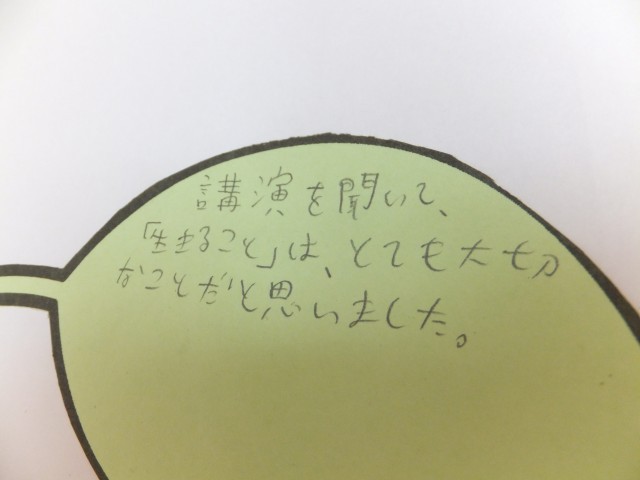 講演を聞いて、
「生きること」は、とても大切
なことだと思いました。